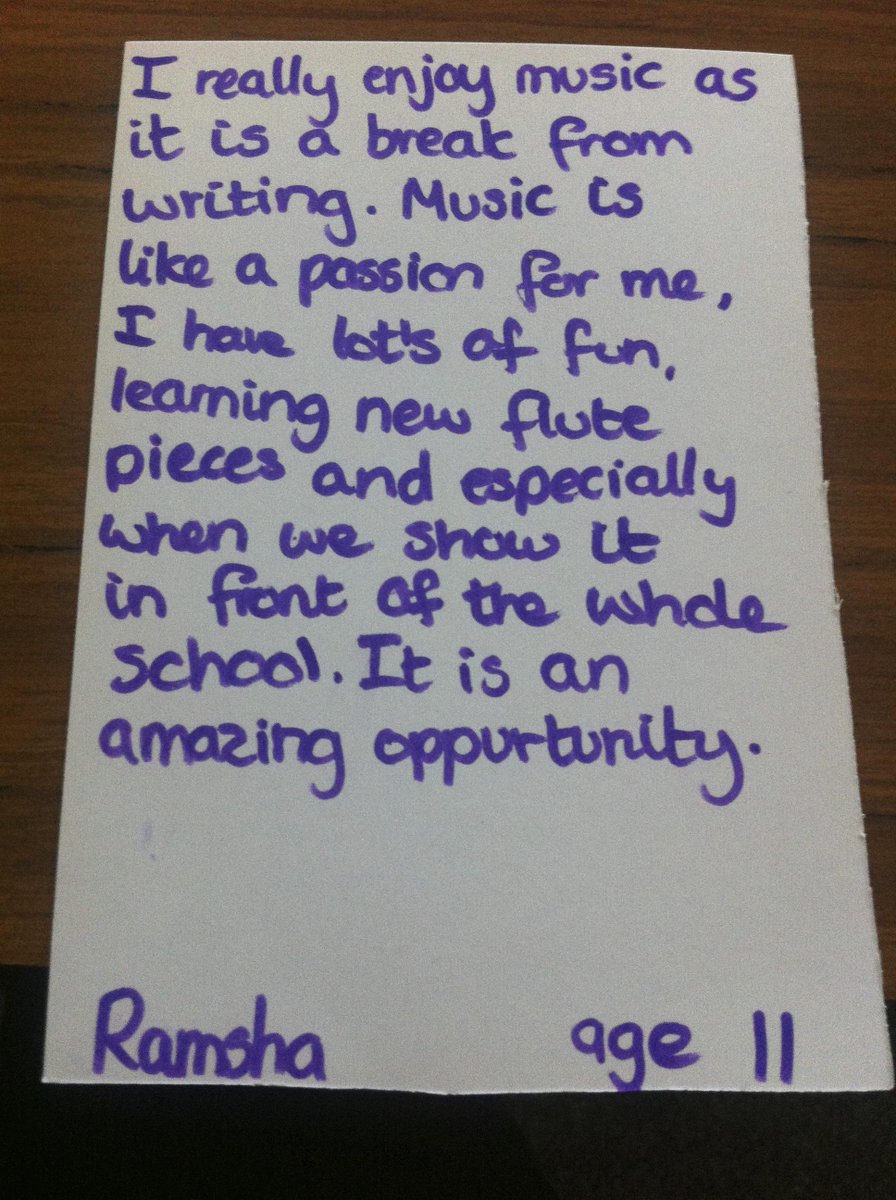 I really enjoy music as
it is a break from
writing. Music is
like a passion for me,
I have lot's of fun,
learning new flute
pieces and especially
when we show it
in front of the whole
school. It is an
amazing oppurtunity.
Ramsha age 11